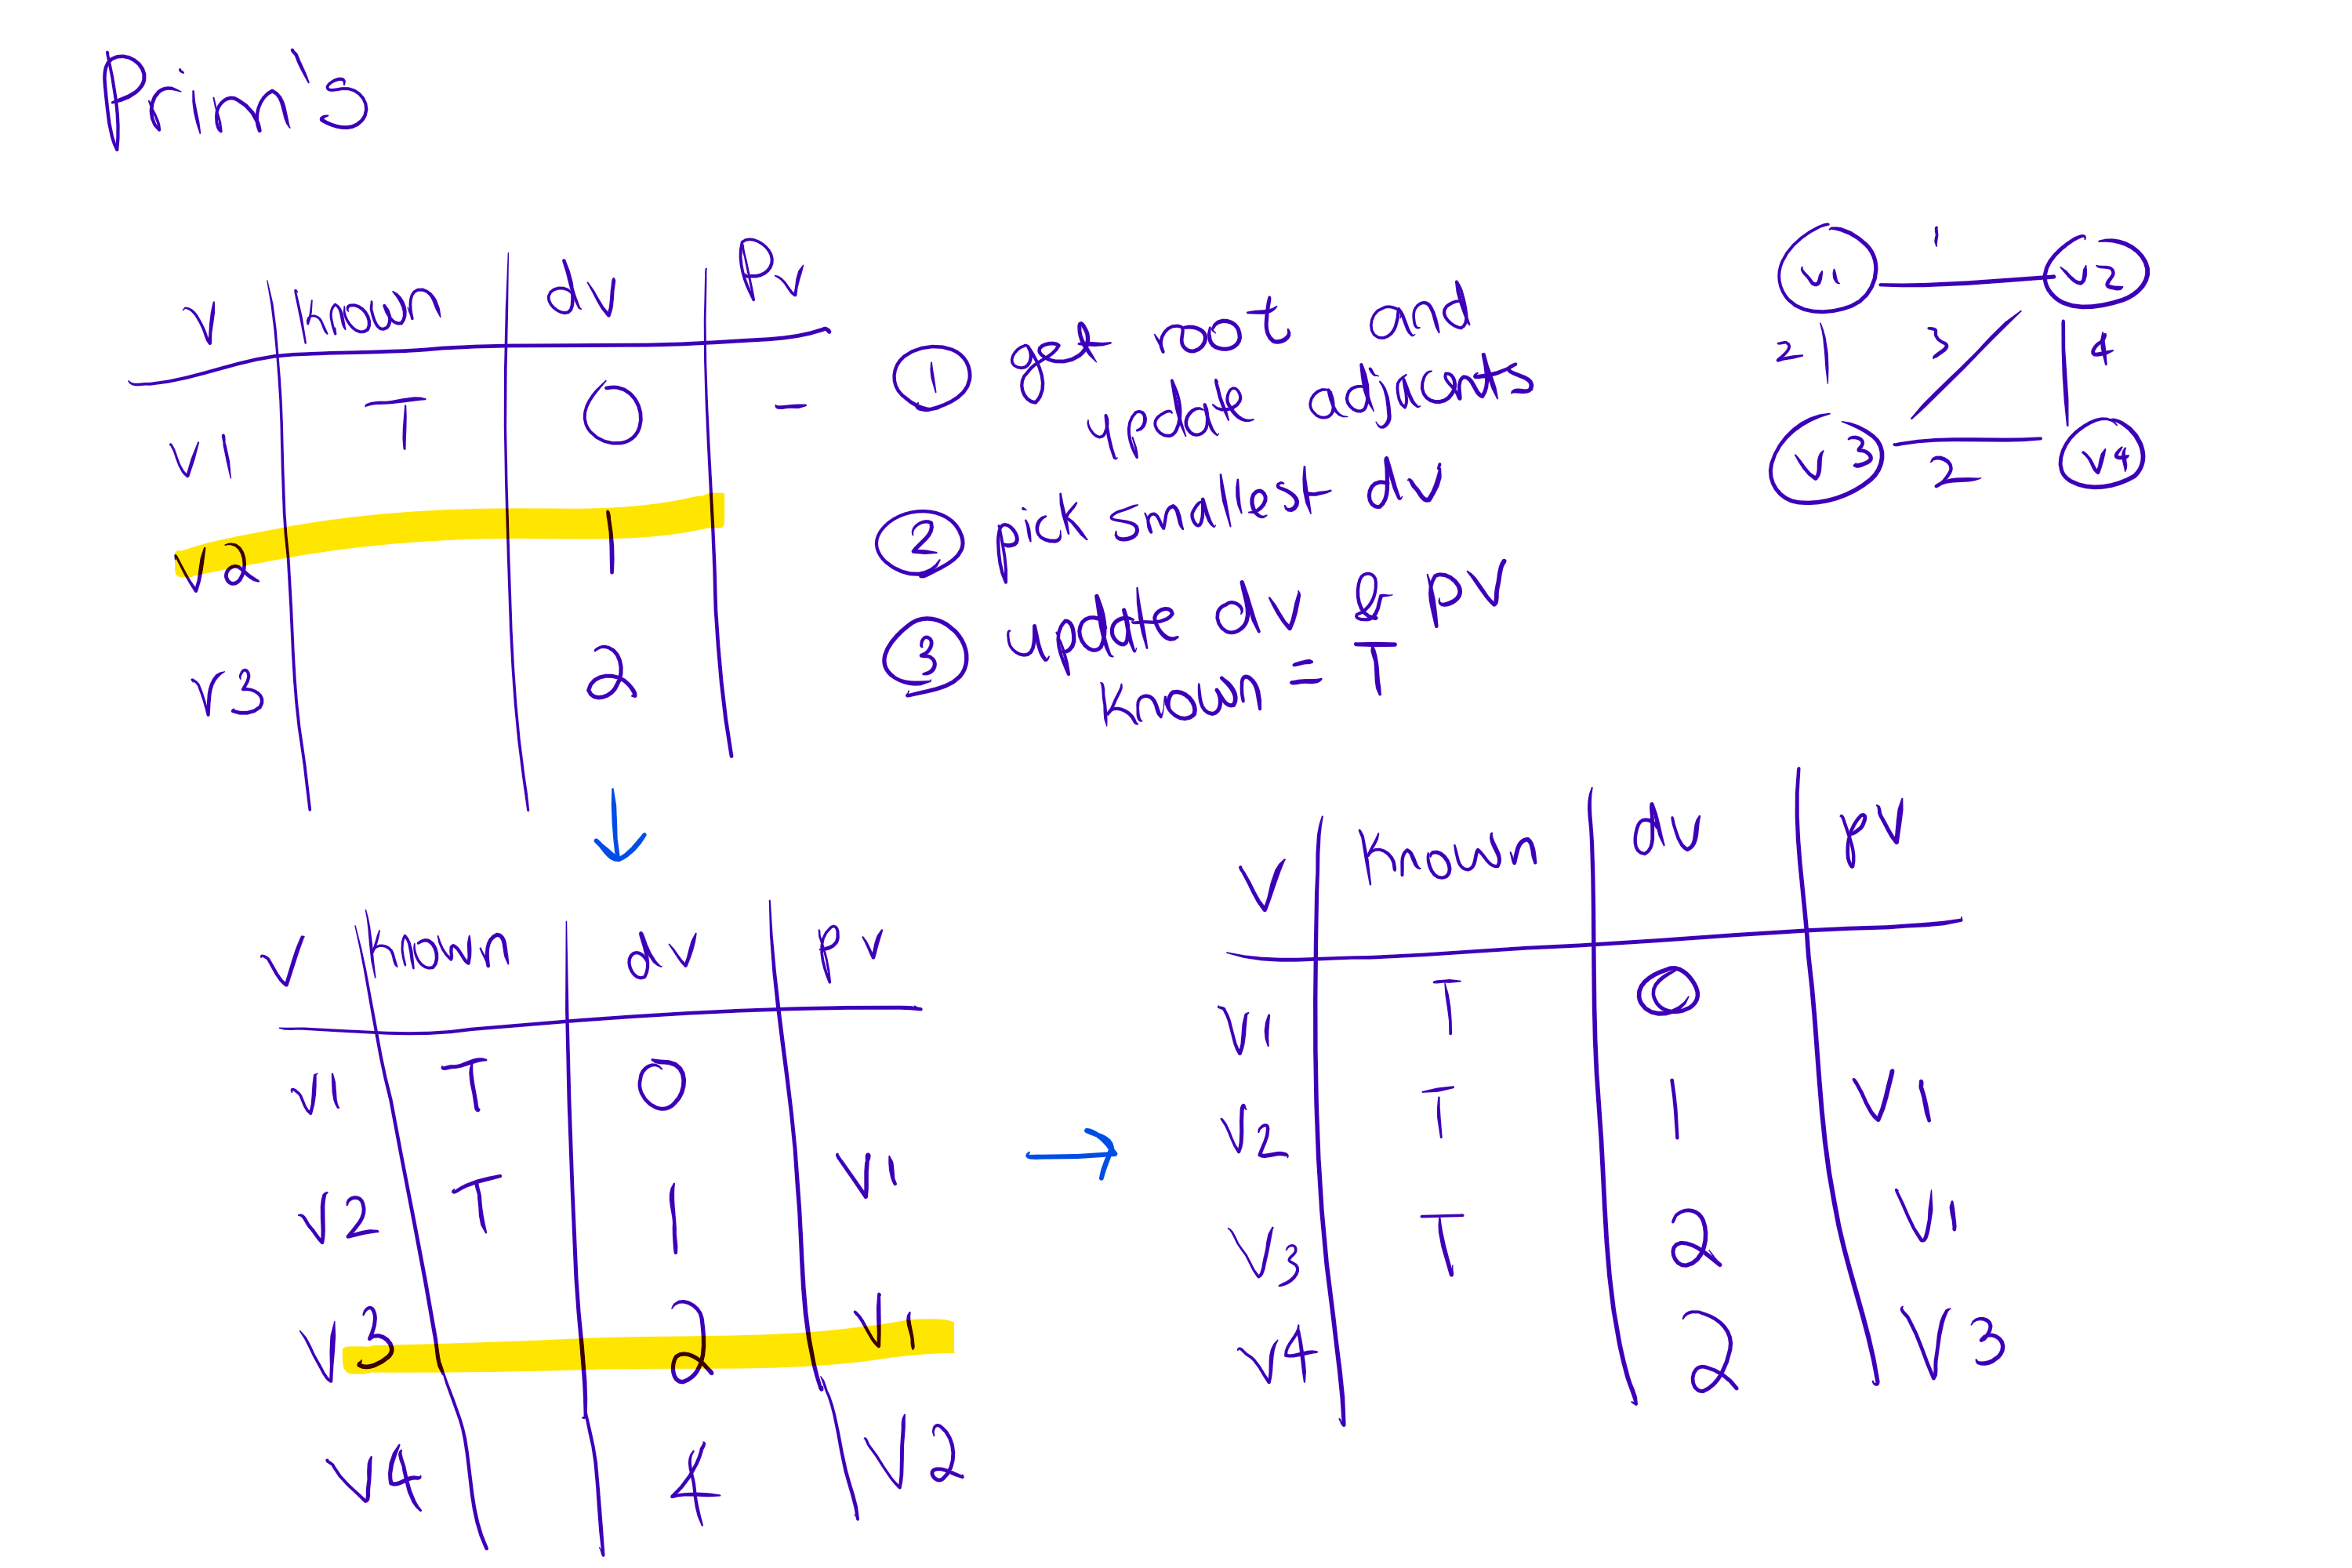 Prim's
V Known dv Pv
V1 T 0 —
V2 1
V3 2
① get root and
update adjacents
② pick smallest dv
③ update dv & pv
Known = T
V1 1 V2
2 3 4
V3 2 V4
V Known dv Pv
V1 T 0
V2 T 1 V1
V3 2 V1
V4 4 V2
V Known dv pv
V1 T 0
V2 T 1 V1
V3 T 2 V1
V4 2 V3